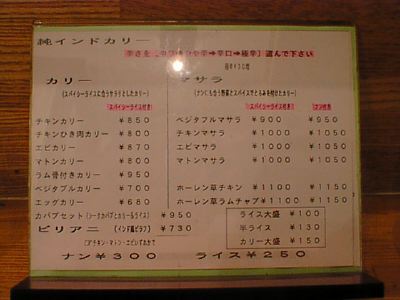 純インドカリー
辛さを 辛口➔極辛】選んで下さい
極辛¥30増
カリー
マサラ
(スパイシーライスに合うサラリとしたカリー)
(ナンにも合う野菜とスパイスでとろみを付けたカリー)
(スパイシーライス付き)
(スパイシーライス付き) (ナン付き)
チキンカリー ¥850
ベジタブルマサラ ¥900 ¥950
チキンひき肉カリー ¥800
チキンマサラ ¥1000 ¥1050
エビカリー ¥870
エビマサラ ¥1000 ¥1050
マトンカリー ¥800
マトンマサラ ¥1000 ¥1050
ラム骨付きカリー ¥950
ベジタブルカリー ¥700
ホーレン草チキン ¥1100 ¥1150
エッグカリー ¥680
ホーレン草ラムチャプ ¥1100 ¥1150
カバブセット (シークカバブとカリー&ライス) ¥950
ライス大盛 ¥100
ビリアニ 【インド風ピラフ】 ¥730
半ライス ¥130
チキン・マトン・エビいずれか
カリー大盛 ¥150
ナン ¥300 ライス ¥250